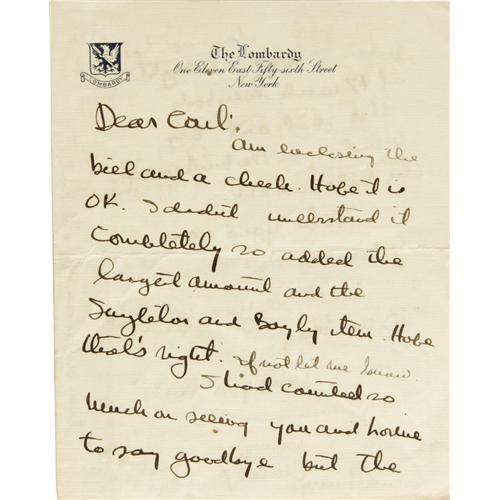 LOMBARDY
The Lombardy
One Eleven East Fifty-sixth Street
New York
Dear Carl:
Am enclosing the
bill and a check. Hope it is
OK. I didn't understand it
completely so added the
largest amount and the
Singleton and Bayly item. Hope
that's right. If not let me know.
I had counted so
much on seeing you and
to say goodbye but the